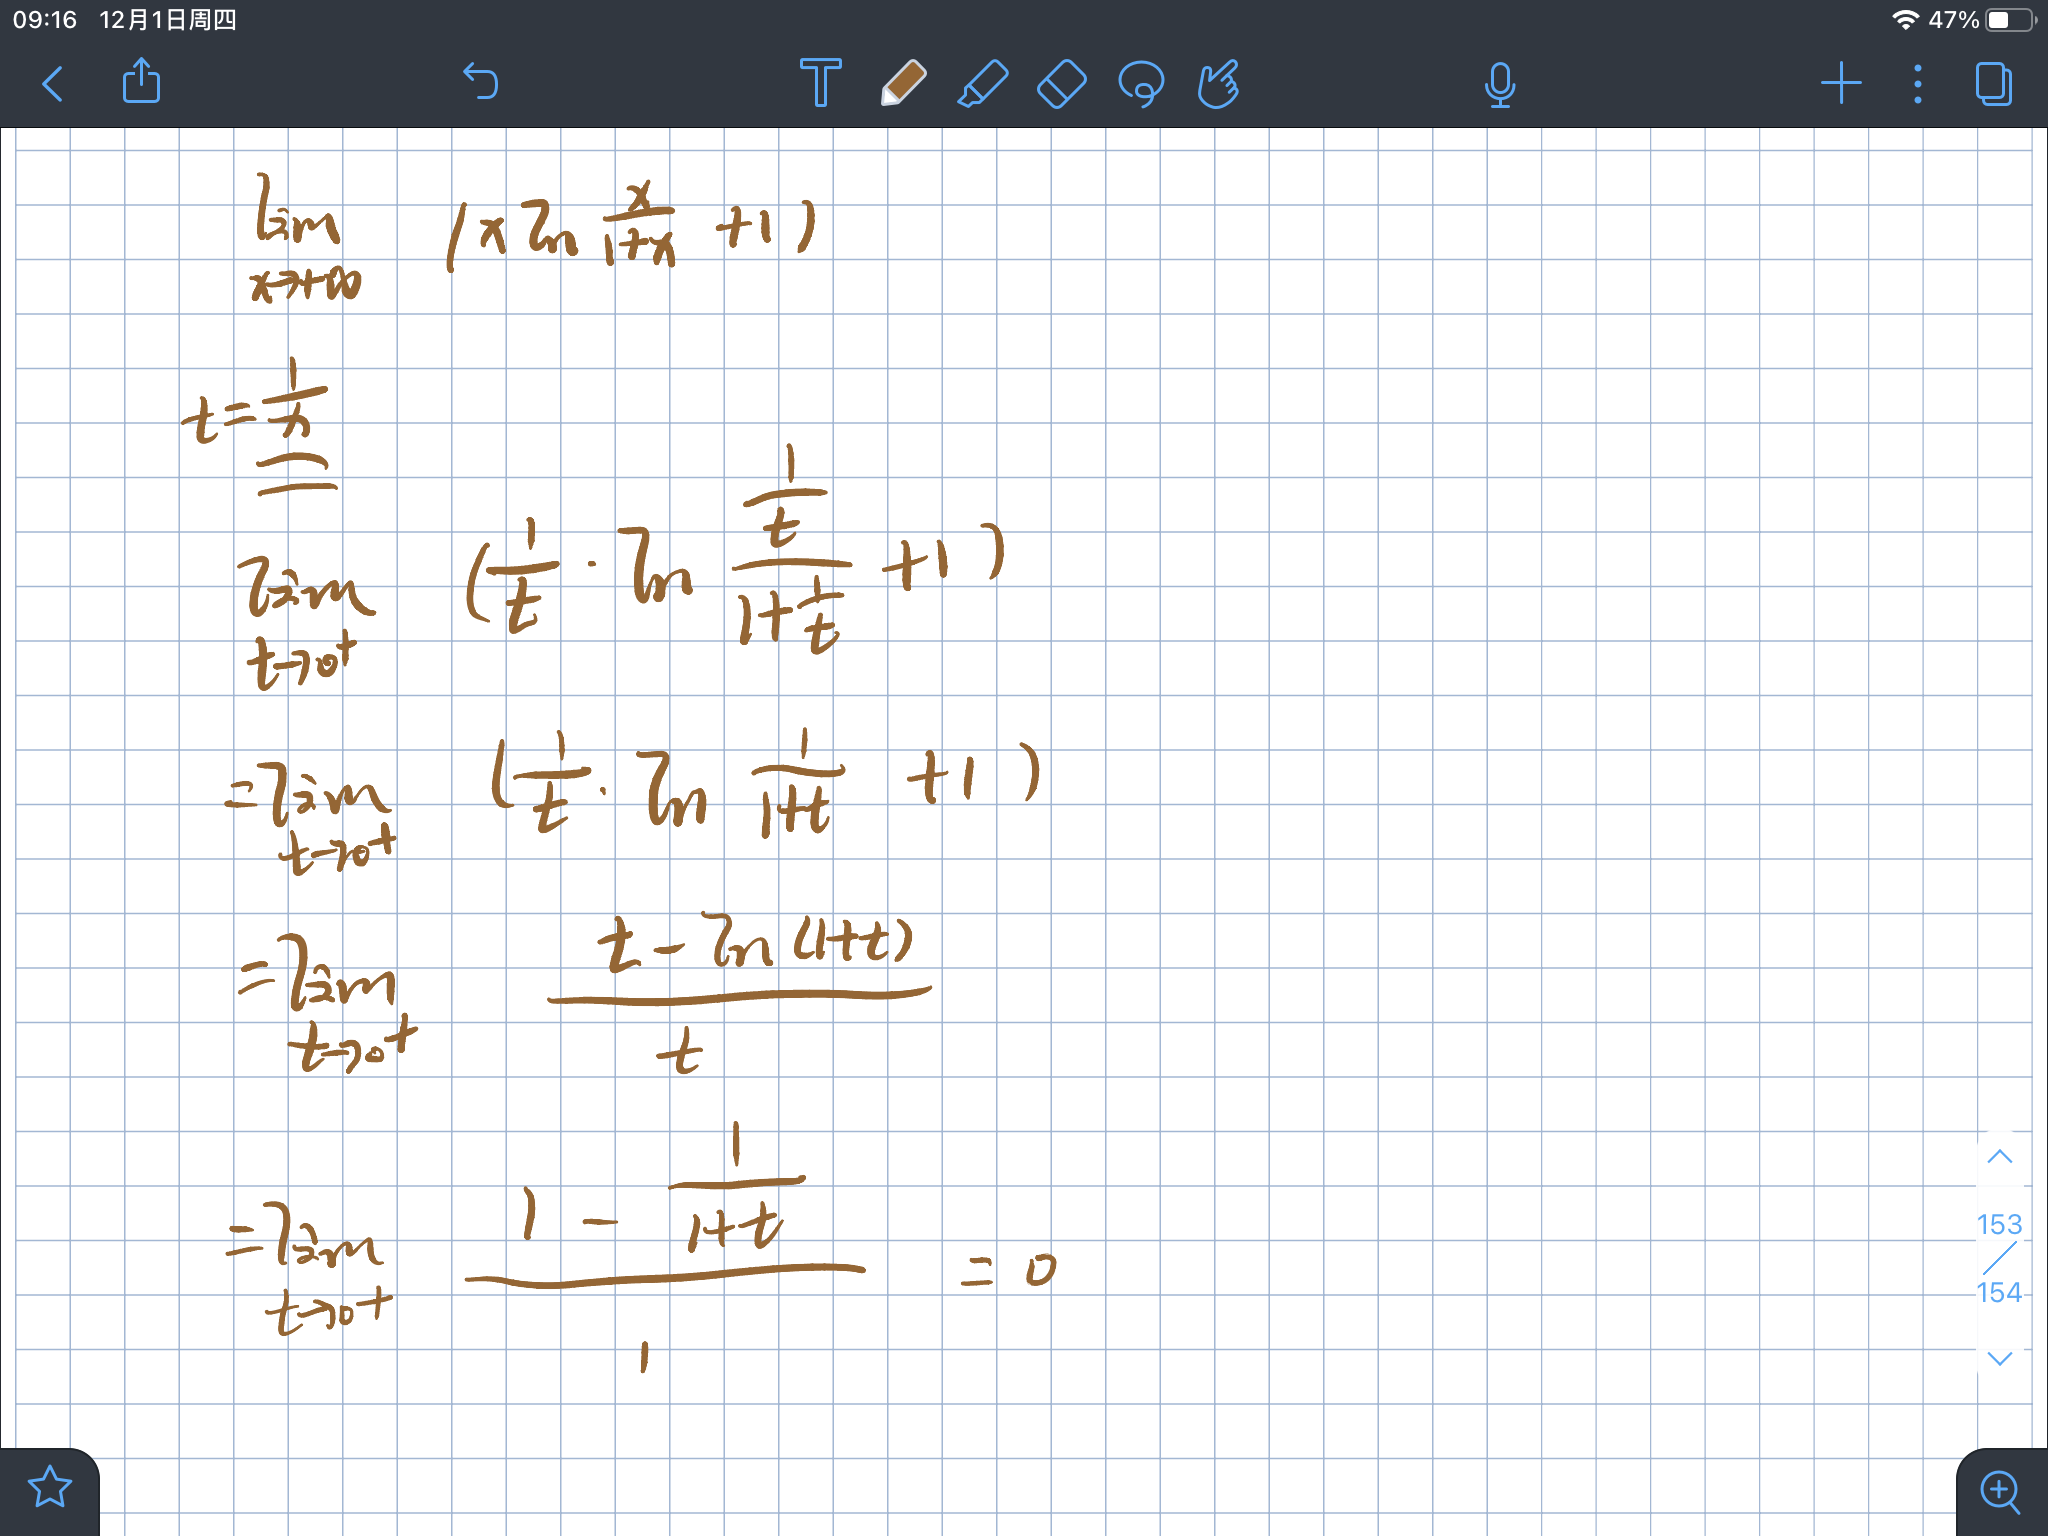 09:16 12月1日周四 47%
lim x→+∞ (x ln x/(1+x) +1)
t = 1/x
=
lim t→0⁺ (1/t · ln (1/t)/(1+1/t) +1)
= lim t→0⁺ (1/t · ln 1/(1+t) +1)
= lim t→0⁺ (t - ln(1+t))/t
= lim t→0⁺ (1 - 1/(1+t))/1 = 0
153
154